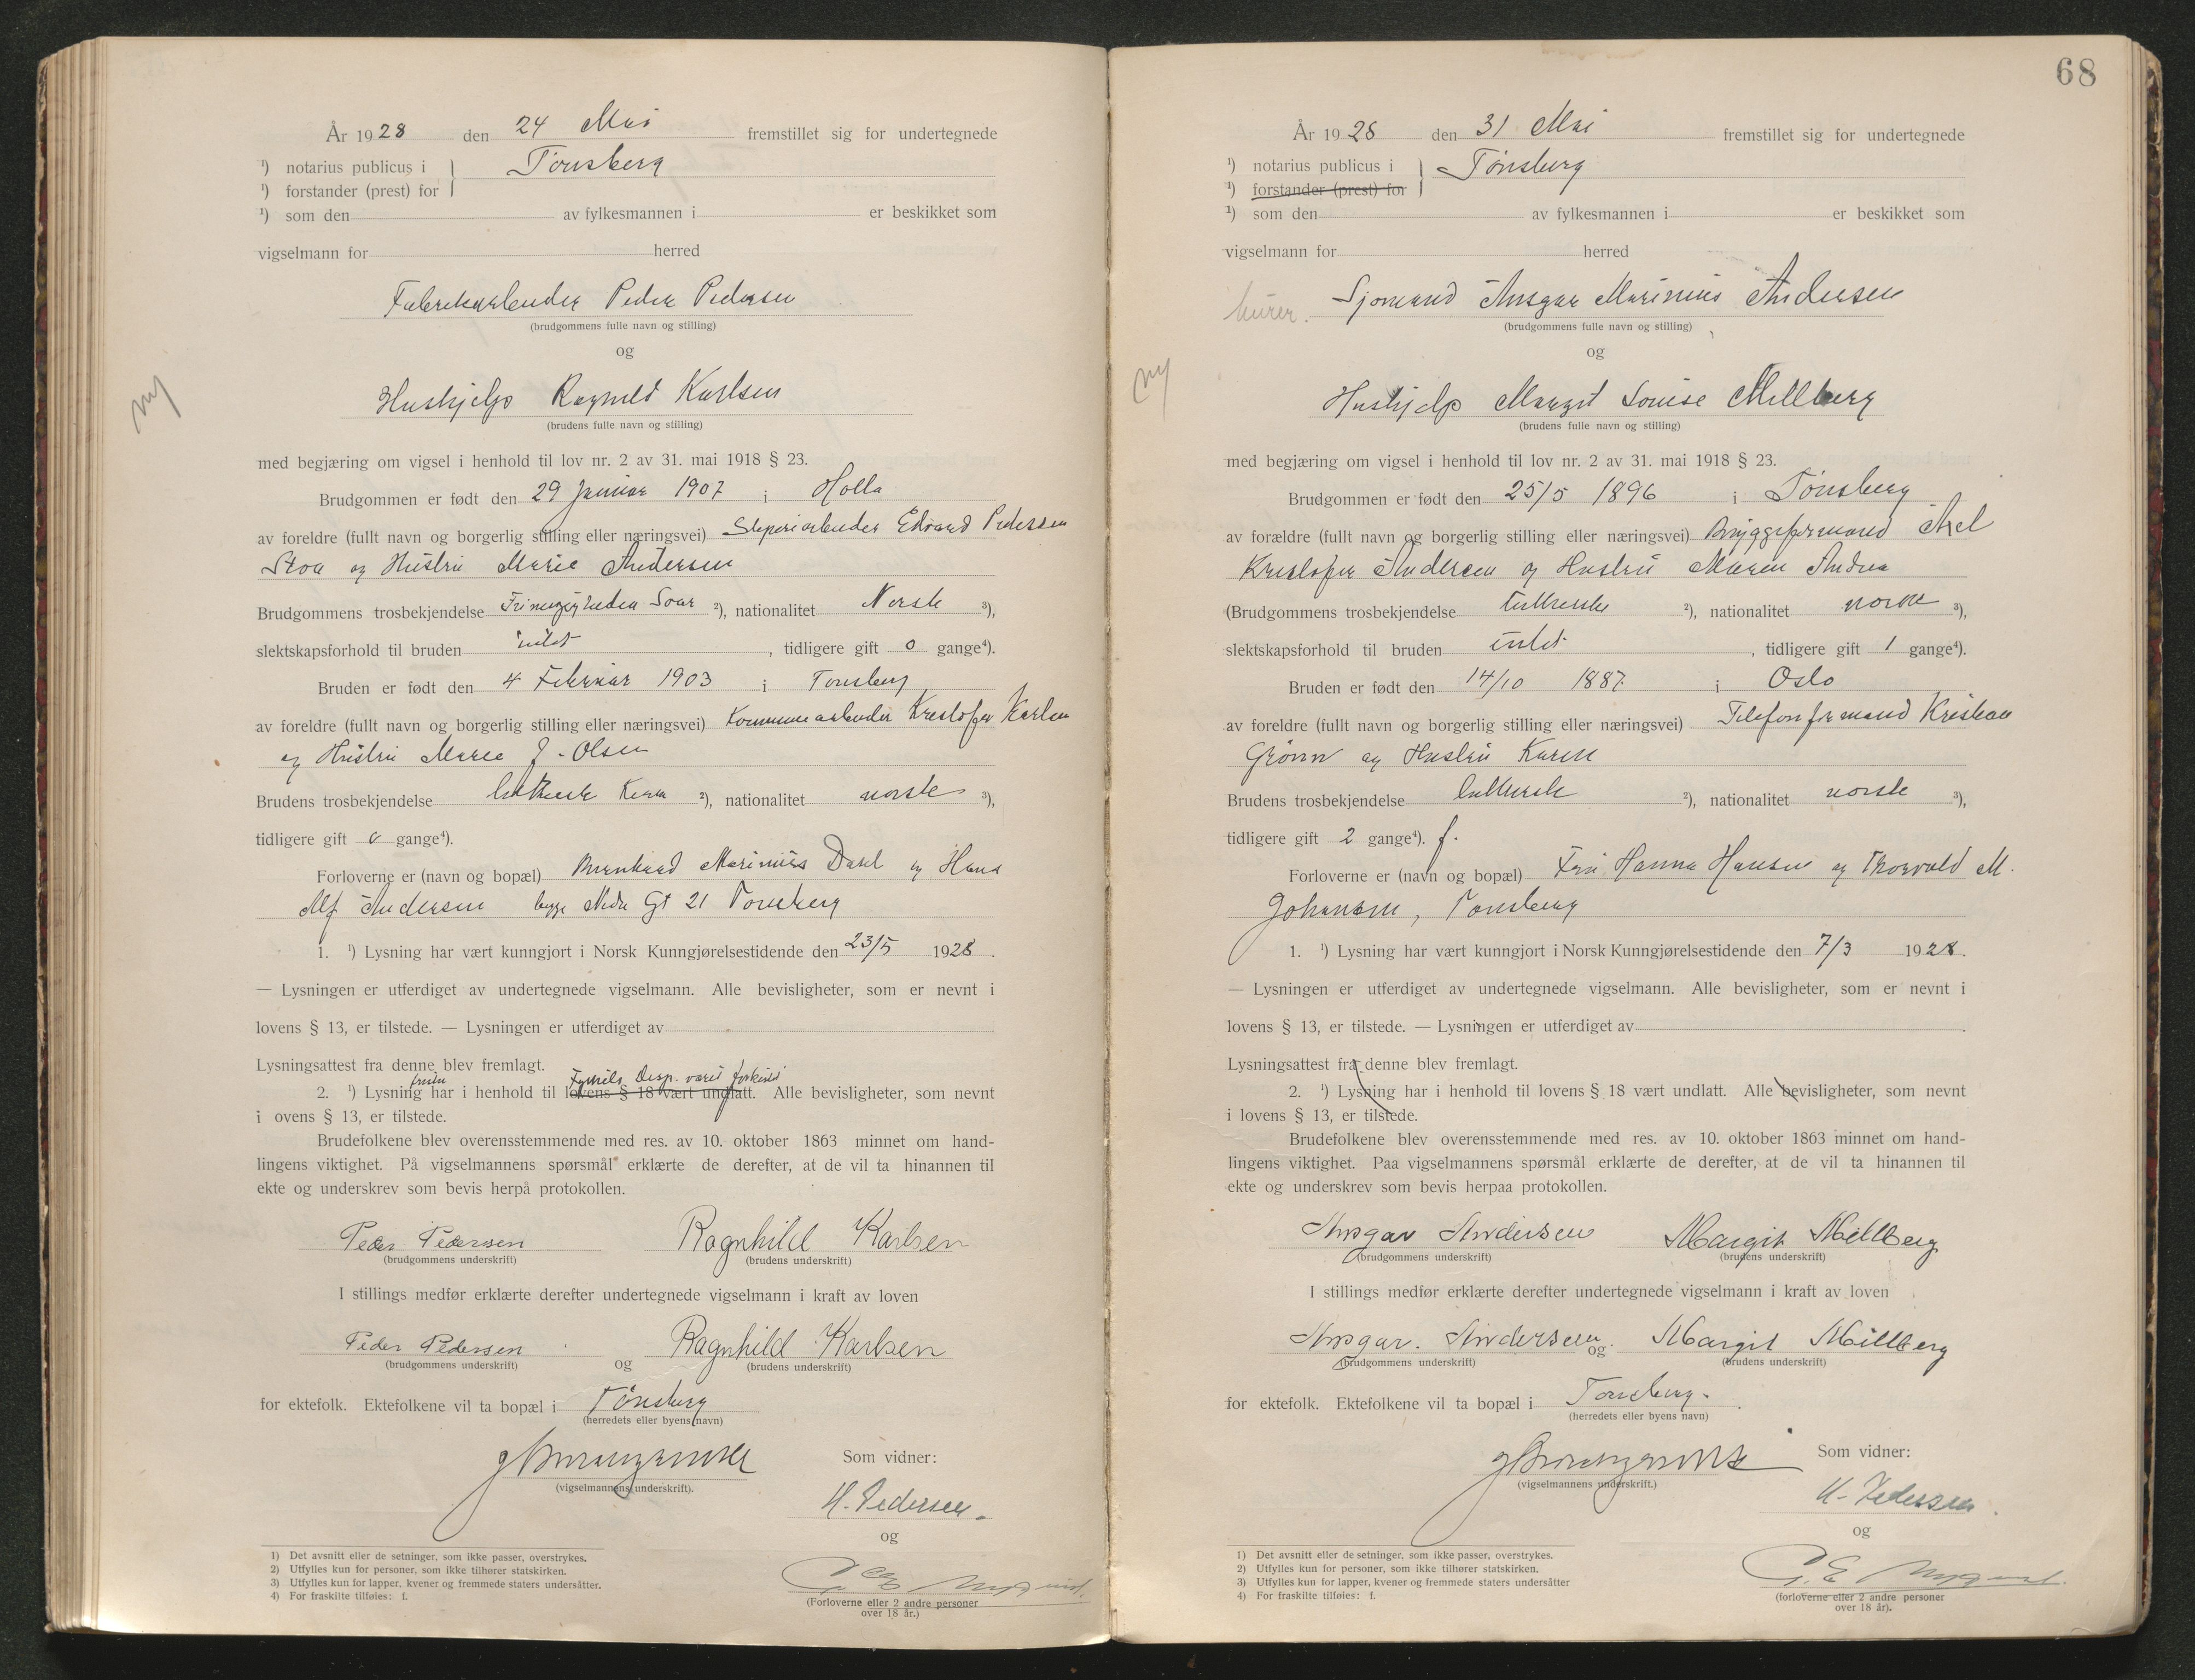 År 1928 den 24 Mai fremstillet sig for undertegnede
¹) notarius publicus i } Tönsberg
¹) forstander (prest) for
¹) som den av fylkesmannen i er beskikket som
vigselmann for herred
Fabrikarbeider Peder Pedersen
(brudgommens fulle navn og stilling)
og
Hushjelp Ragnild Karlsen
(brudens fulle navn og stilling)
ny
med begjæring om vigsel i henhold til lov nr. 2 av 31. mai 1918 § 23.
Brudgommen er født den 29 Januar 1907 i Holla
av foreldre (fullt navn og borgerlig stilling eller næringsvei) Sliperiarbeider Edvard Pedersen
Stoa og Hustru Marie Andersen
Brudgommens trosbekjendelse Frimenigheden ²), nationalitet Norsk ³),
slektskapsforhold til bruden intet , tidligere gift 0 gange⁴).
Bruden er født den 4 Februar 1903 i Tonsberg
av foreldre (fullt navn og borgerlig stilling eller næringsvei) Kommunearbeider Kristofer Karlsen
og Hustru Marie J. Olsen
Brudens trosbekjendelse luthersk ²), nationalitet norsk ³),
tidligere gift 0 gange⁴).
Forloverne er (navn og bopæl) Bernhard Marinius Dahl og Hans
Alf Andersen begge Nedre Gt 21 Tonsberg
1. ¹) Lysning har vært kunngjort i Norsk Kunngjørelsestidende den 23/5 1928.
— Lysningen er utferdiget av undertegnede vigselmann. Alle bevisligheter, som er nevnt i
lovens § 13, er tilstede. — Lysningen er utferdiget av
Lysningsattest fra denne blev fremlagt.
Fylkets Disp.
2. ¹) Lysning har i henhold til lovens § 18 vært undlatt. Alle bevisligheter, som nevnt
i ovens § 13, er tilstede.
Brudefolkene blev overensstemmende med res. av 10. oktober 1863 minnet om hand-
lingens viktighet. På vigselmannens spørsmål erklærte de derefter, at de vil ta hinannen til
ekte og underskrev som bevis herpå protokollen.
Peder Pedersen Ragnhild Karlsen
(brudgommens underskrift) (brudens underskrift)
I stillings medfør erklærte derefter undertegnede vigselmann i kraft av loven
Peder Pedersen og Ragnhild Karlsen
(brudgommens underskrift) (brudens underskrift)
for ektefolk. Ektefolkene vil ta bopæl i Tönsberg
(herredets eller byens navn)
Som vidner:
(vigselmannens underskrift).
H. Pedersen.
og
(Forloverne eller 2 andre personer
over 18 år.)
1) Det avsnitt eller de setninger, som ikke passer, overstrykes.
2) Utfylles kun for personer, som ikke tilhører statskirken.
3) Utfylles kun for lapper, kvener og fremmede staters undersåtter.
4) For fraskilte tilføies: f.
68
År 1928 den 31 Mai fremstillet sig for undertegnede
¹) notarius publicus i } Tönsberg
¹) forstander (prest) for
¹) som den av fylkesmannen i er beskikket som
vigselmann for herred
murer. Sjomand Ansgar Marinius Andersen
(brudgommens fulle navn og stilling)
og
ny
Hushjelp Margit Louise Millberg
(brudens fulle navn og stilling)
med begjæring om vigsel i henhold til lov nr. 2 av 31. mai 1918 § 23.
Brudgommen er født den 25/5 1896 i Tönsberg
av forældre (fullt navn og borgerlig stilling eller næringsvei) Bryggeformand Axel
Kristofer Andersen og Hustru Maren Andrea
(Brudgommens trosbekjendelse luthersk ²), nationalitet norsk ³),
slektskapsforhold til bruden intet , tidligere gift 1 gange⁴).
Bruden er født den 14/10 1887. i Oslo
av foreldre (fullt navn og borgerlig stilling eller næringsvei) Telefonformand Kristian
Grönn og Hustru Karen
Brudens trosbekjendelse luthersk ²), nationalitet norsk ³),
tidligere gift 2 gange⁴). f.
Forloverne er (navn og bopæl) Fru Hanna Hansen og Thorvald M.
Johansen, Tonsberg
1. ¹) Lysning har vært kunngjort i Norsk Kunngjørelsestidende den 7/3 1928.
— Lysningen er utferdiget av undertegnede vigselmann. Alle bevisligheter, som er nevnt i
lovens § 13, er tilstede. — Lysningen er utferdiget av .
Lysningsattest fra denne blev fremlagt.
2. ¹) Lysning har i henhold til lovens § 18 vært undlatt. Alle bevisligheter, som nevnt
i lovens § 13, er tilstede.
Brudefolkene blev overensstemmende med res. av 10. oktober 1863 minnet om hand-
lingens viktighet. Paa vigselmannens spørsmål erklærte de derefter, at de vil ta hinannen til
ekte og underskrev som bevis herpaa protokollen.
Ansgar Andersen Margit Millberg
(brudgommens underskrift) (brudens underskrift)
I stillings medfør erklærte derefter undertegnede vigselmann i kraft av loven
Ansgar. Andersen og Margit Millberg
(brudgommens underskrift) (brudens underskrift)
for ektefolk. Ektefolkene vil ta bopæl i Tonsberg.
(herredets eller byens navn)
Som vidner:
(vigselmannens underskrift.)
H. Pedersen.
og
(forloverne eller 2 andre personer
over 18 år).
1) Det avsnitt eller de setninger, som ikke passer, overstrykes.
2) Utfylles kun for personer, som ikke tilhører statskirken.
3) Utfylles kun for lapper, kvener og fremmede staters undersåtter
4) For fraskilte tilføies: f.